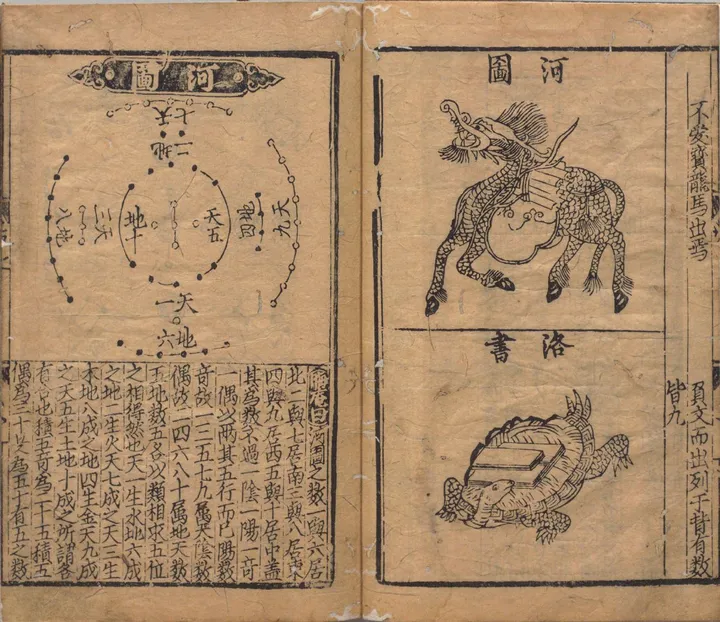 不愛寶龍馬出焉
負文而出列于背有數
皆九
河圖
洛書
河圖
天七
地二
天九
地四
天五
地十
天三
地八
天一
地六
晦菴曰河圖之數一與六居
北二與七居南三與八居東
四與九居西五與十居中蓋
其爲數不過一陰一陽一奇
一偶以兩其五行而已陽數
奇故一三五七九屬天陰數
偶故二四六八十屬地天數
五地數五各以類相求五位
之相得然也天一生水地六成
之地二生火天七成之天三生
木地八成之地四生金天九成
之天五生土地十成之所謂各
有合也積五奇爲二十五積五
偶爲三十共爲五十有五之數